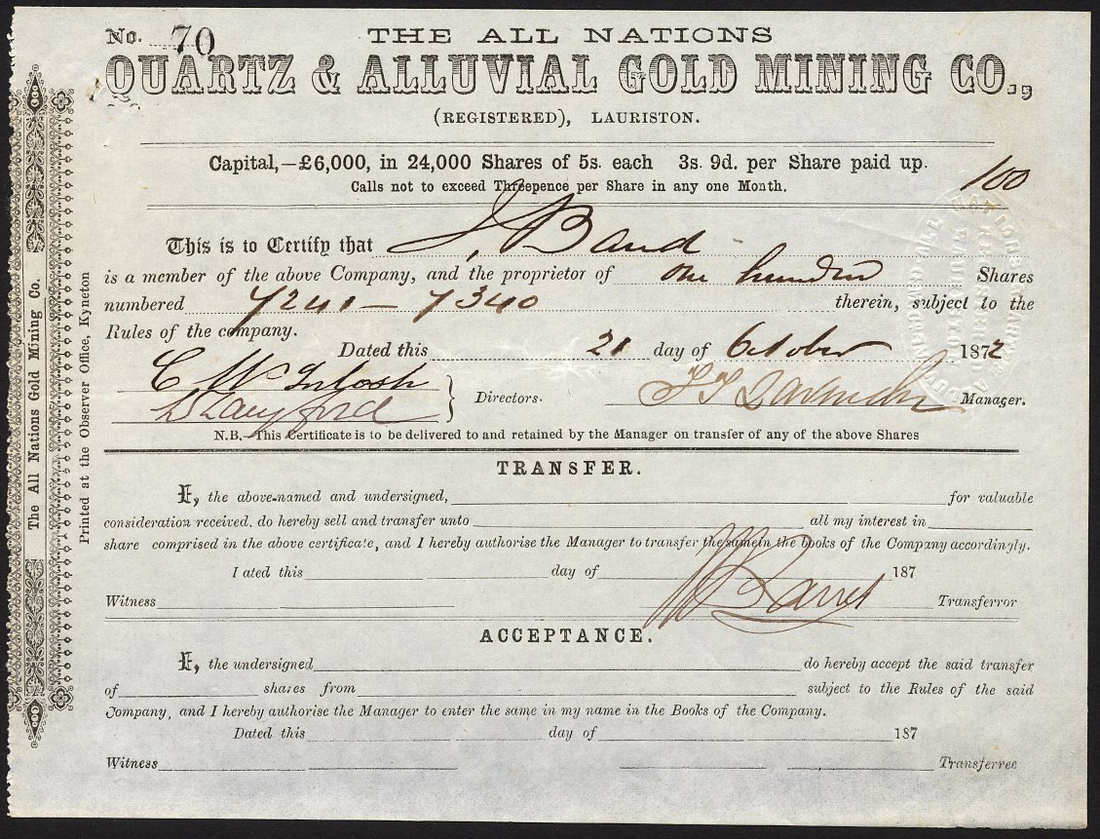 No. 70
THE ALL NATIONS
QUARTZ & ALLUVIAL GOLD MINING CO.,
(REGISTERED), LAURISTON.
Capital,—£6,000, in 24,000 Shares of 5s. each 3s. 9d. per Share paid up.
Calls not to exceed Threepence per Share in any one Month.
100
This is to Certify that J. Band
is a member of the above Company, and the proprietor of one hundred Shares
numbered 7241 – 7340 therein, subject to the
Rules of the company.
Dated this 21 day of October 1872
C McIntosh
Directors. Manager.
N.B.—This Certificate is to be delivered to and retained by the Manager on transfer of any of the above Shares
TRANSFER.
I, the above-named and undersigned, for valuable
consideration received, do hereby sell and transfer unto all my interest in
share comprised in the above certificate, and I hereby authorise the Manager to transfer the same in the books of the Company accordingly.
Dated this day of 187
Witness Transferror
ACCEPTANCE.
I, the undersigned do hereby accept the said transfer
of shares from subject to the Rules of the said
Company, and I hereby authorise the Manager to enter the same in my name in the Books of the Company.
Dated this day of 187
Witness Transferree
The All Nations Gold Mining Co.
Printed at the Observer Office, Kyneton